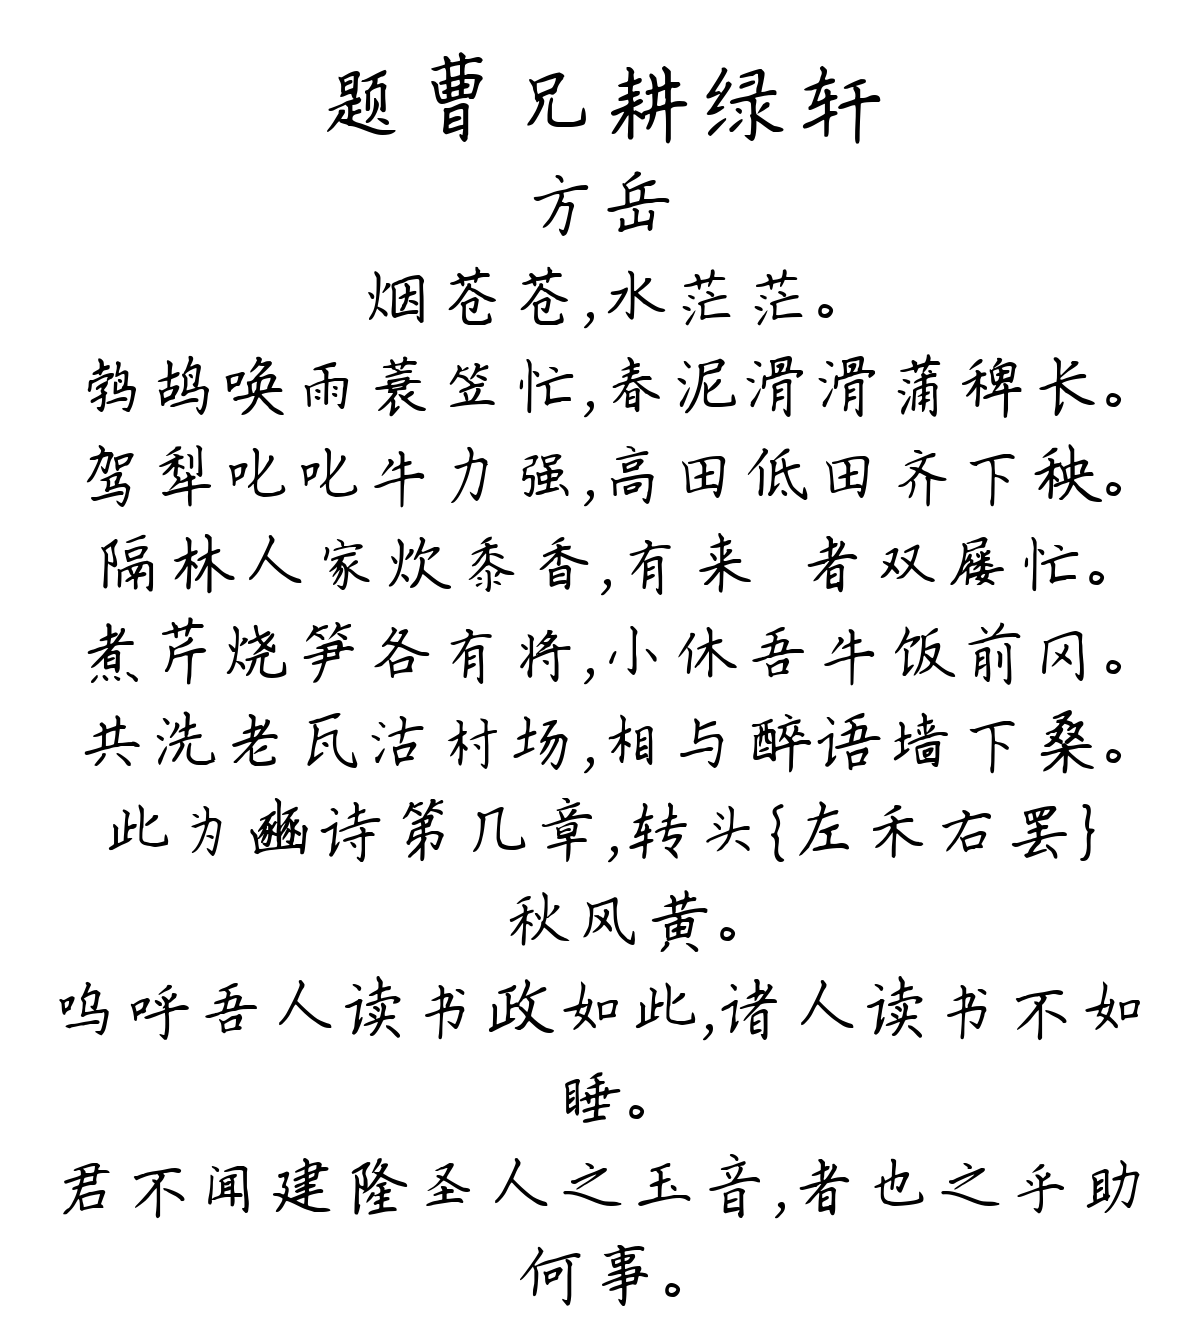 题曹兄耕绿轩
方岳
烟苍苍,水茫茫。
鹁鸪唤雨蓑笠忙,春泥滑滑蒲稗长。
驾犁叱叱牛力强,高田低田齐下秧。
隔林人家炊黍香,有来 者双屦忙。
煮芹烧笋各有将,小休吾牛饭前冈。
共洗老瓦沽村场,相与醉语墙下桑。
此为豳诗第几章,转头{左禾右罢}
秋风黄。
呜呼吾人读书政如此,诸人读书不如
睡。
君不闻建隆圣人之玉音,者也之乎助
何事。